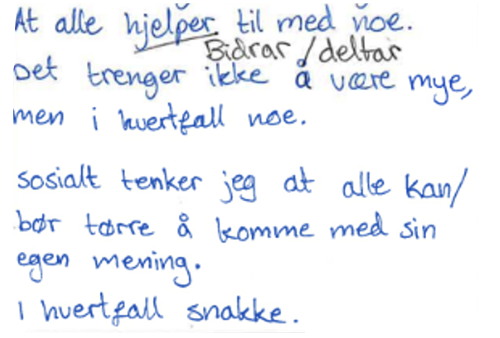 At alle hjelper til med noe.
Bidrar/deltar
Det trenger ikke å være mye,
men i hvertfall noe.
sosialt tenker jeg at alle kan/
bør tørre å komme med sin
egen mening.
I hvertfall snakke.